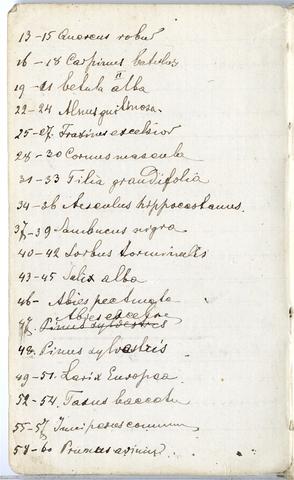 13-15 Quercus robur
16-18 Carpinus betulus
19-21 betula alba
22-24 Alnus glutinosa
25-27. Fraxinus excelsior
28-30 Cornus mascula
31-33 Tilia grandifolia
34-36 Aesculus hyppocastanus.
37-39 Sambucus nigra
40-42 Sorbus torminalis
43-45 Salix alba
46- Abies pectinata
Abies excelsa
47. Pinus sylvestris
48. Pinus sylvestris
49-51. Larix Europaea
52-54. Taxus baccata
55-57. Juniperus communis
58-60 Prunus avium